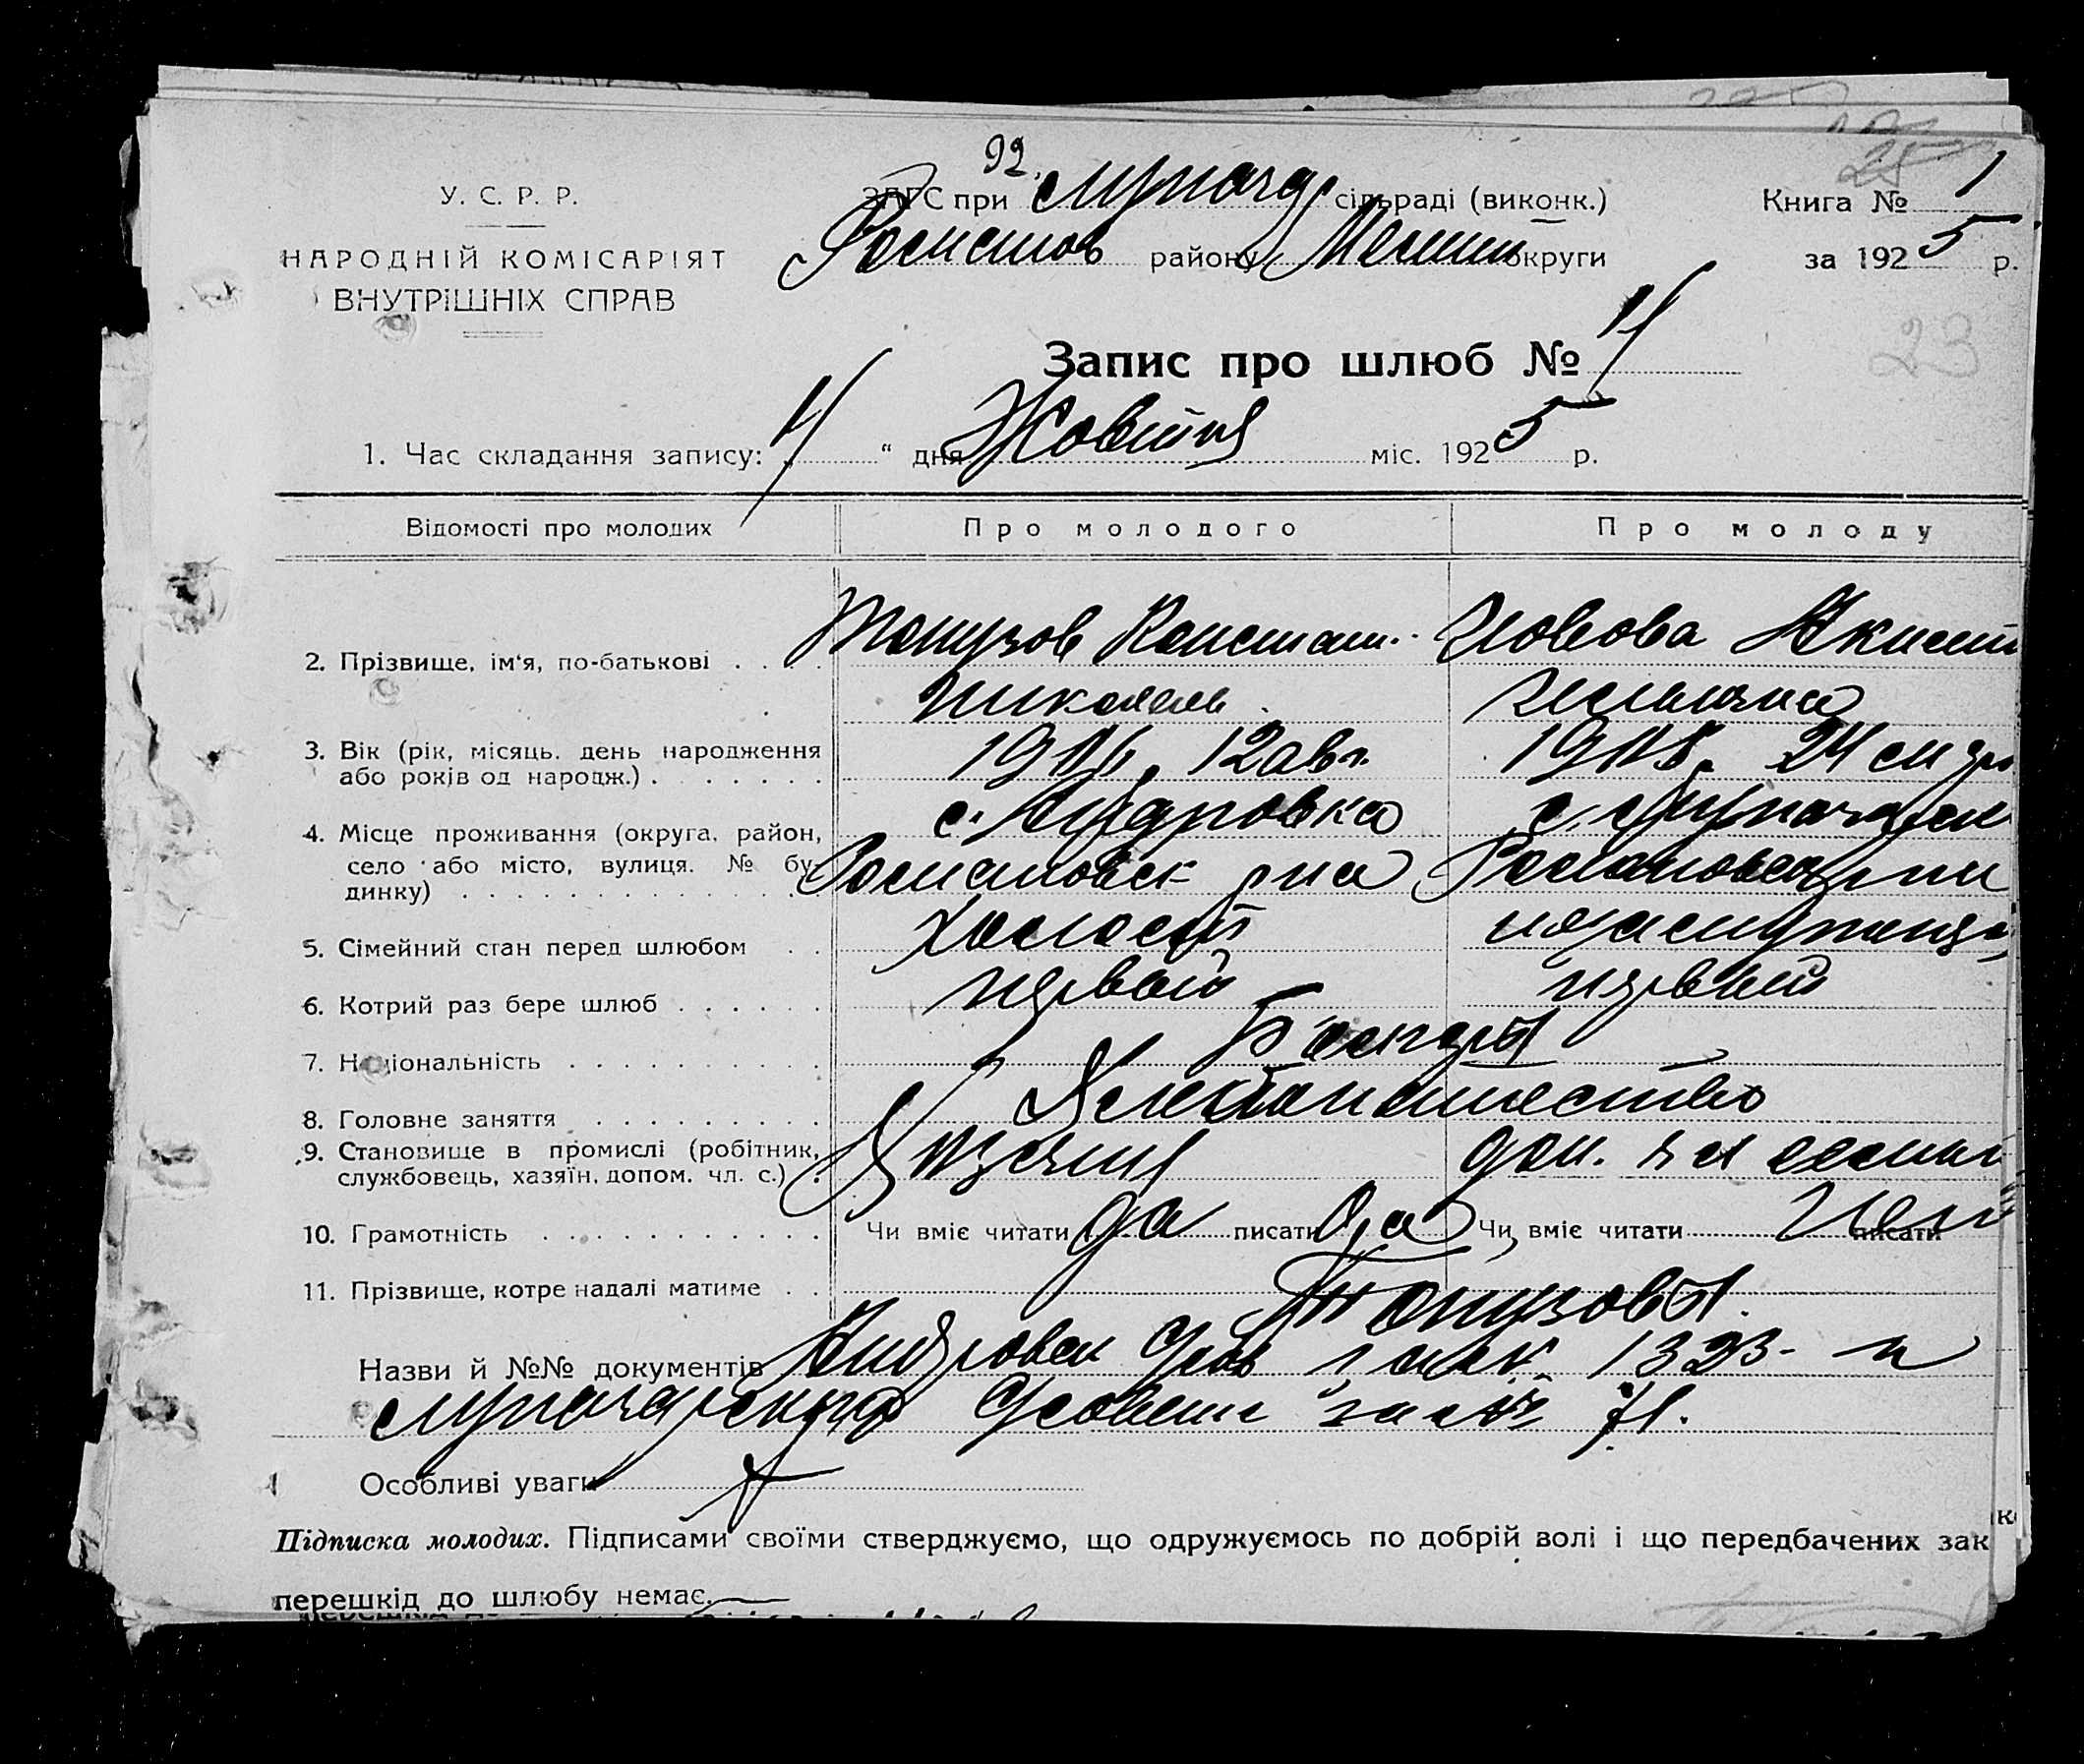 92
У. С. Р. Р.
НАРОДНІЙ КОМІСАРІЯТ
ВНУТРІШНІХ СПРАВ
ЗАГС при Луначар сільраді (виконк.)
Романов району Мелит округи
Книга № 1
за 1925 р.
25
23
Запис про шлюб № 4
1. Час складання запису: „ 4 “ дня Жовтня міс. 1925 р.
Відомості про молодих
Про молодого
Про молоду
2. Прізвище, ім‘я, по-батькові . . .
Топузов Констант.
Николаев
Иовова
3. Вік (рік, місяць, день народження або років од народж.) . . . . . . .
12 авг.
24
4. Місце проживання (округа, район, село або місто, вулиця, № будинку) . . . . . . . . . . . . .
с.
Романовск р-на
с. Луначарск
Романовск р-на
5. Сімейний стан перед шлюбом . .
Холост
незамужняя
6. Котрий раз бере шлюб . . . . . .
первый
первый
7. Національність . . . . . . . . . .
Болгары
8. Головне заняття . . . . . . . . .
Хлебопашество
9. Становище в промислі (робітник, службовець, хазяїн, допом. чл. с.) .
Хозяин
чл семьи
10. Грамотність . . . . . . . . . . .
Чи вміє читати да писати да
Чи вміє читати Нет писати
11. Прізвище, котре надалі матиме . .
Топузовы.
Назви й №№ документів
Луначарскаго
71.
Особливі уваги
Підписка молодих. Підписами своїми стверджуємо, що одружуємось по добрій волі і що передбачених зак
перешкід до шлюбу немає.